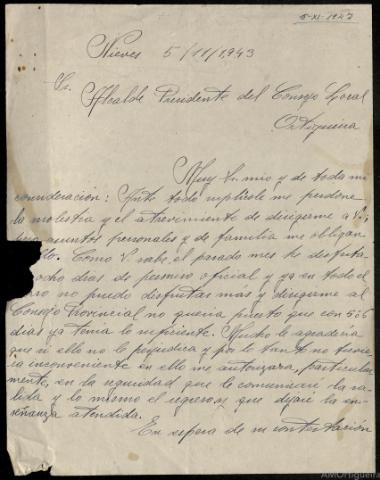 5-XI-1943
Nieves 5/11/1943
Sr. Alcalde Presidente del Consejo Local
Ortigueira
Muy Sr. mio y de toda mi
consideración: Ante todo suplícole me perdone
la molestia y el atrevimiento de dirigirme a V.;
pero asuntos personales y de familia me obligan
a ello. Como V. sabe el pasado mes he disfruta-
do ocho dias de permiso oficial y ya en todo el
curso no puedo disfrutar más y dirigirme al
Consejo Provincial no queria puesto que con 5 ó 6
dias ya tenia lo suficiente. Mucho le agradeceria
que si ello no le perjudica y por lo tanto no tuvie-
ra inconveniente en ello me autorizara, particular-
mente, en la seguridad que le comunicaré la sa-
lida y lo mismo el regreso, y que dejaré la en-
señanza atendida.
En espera de su contestación
AMOrtigueira